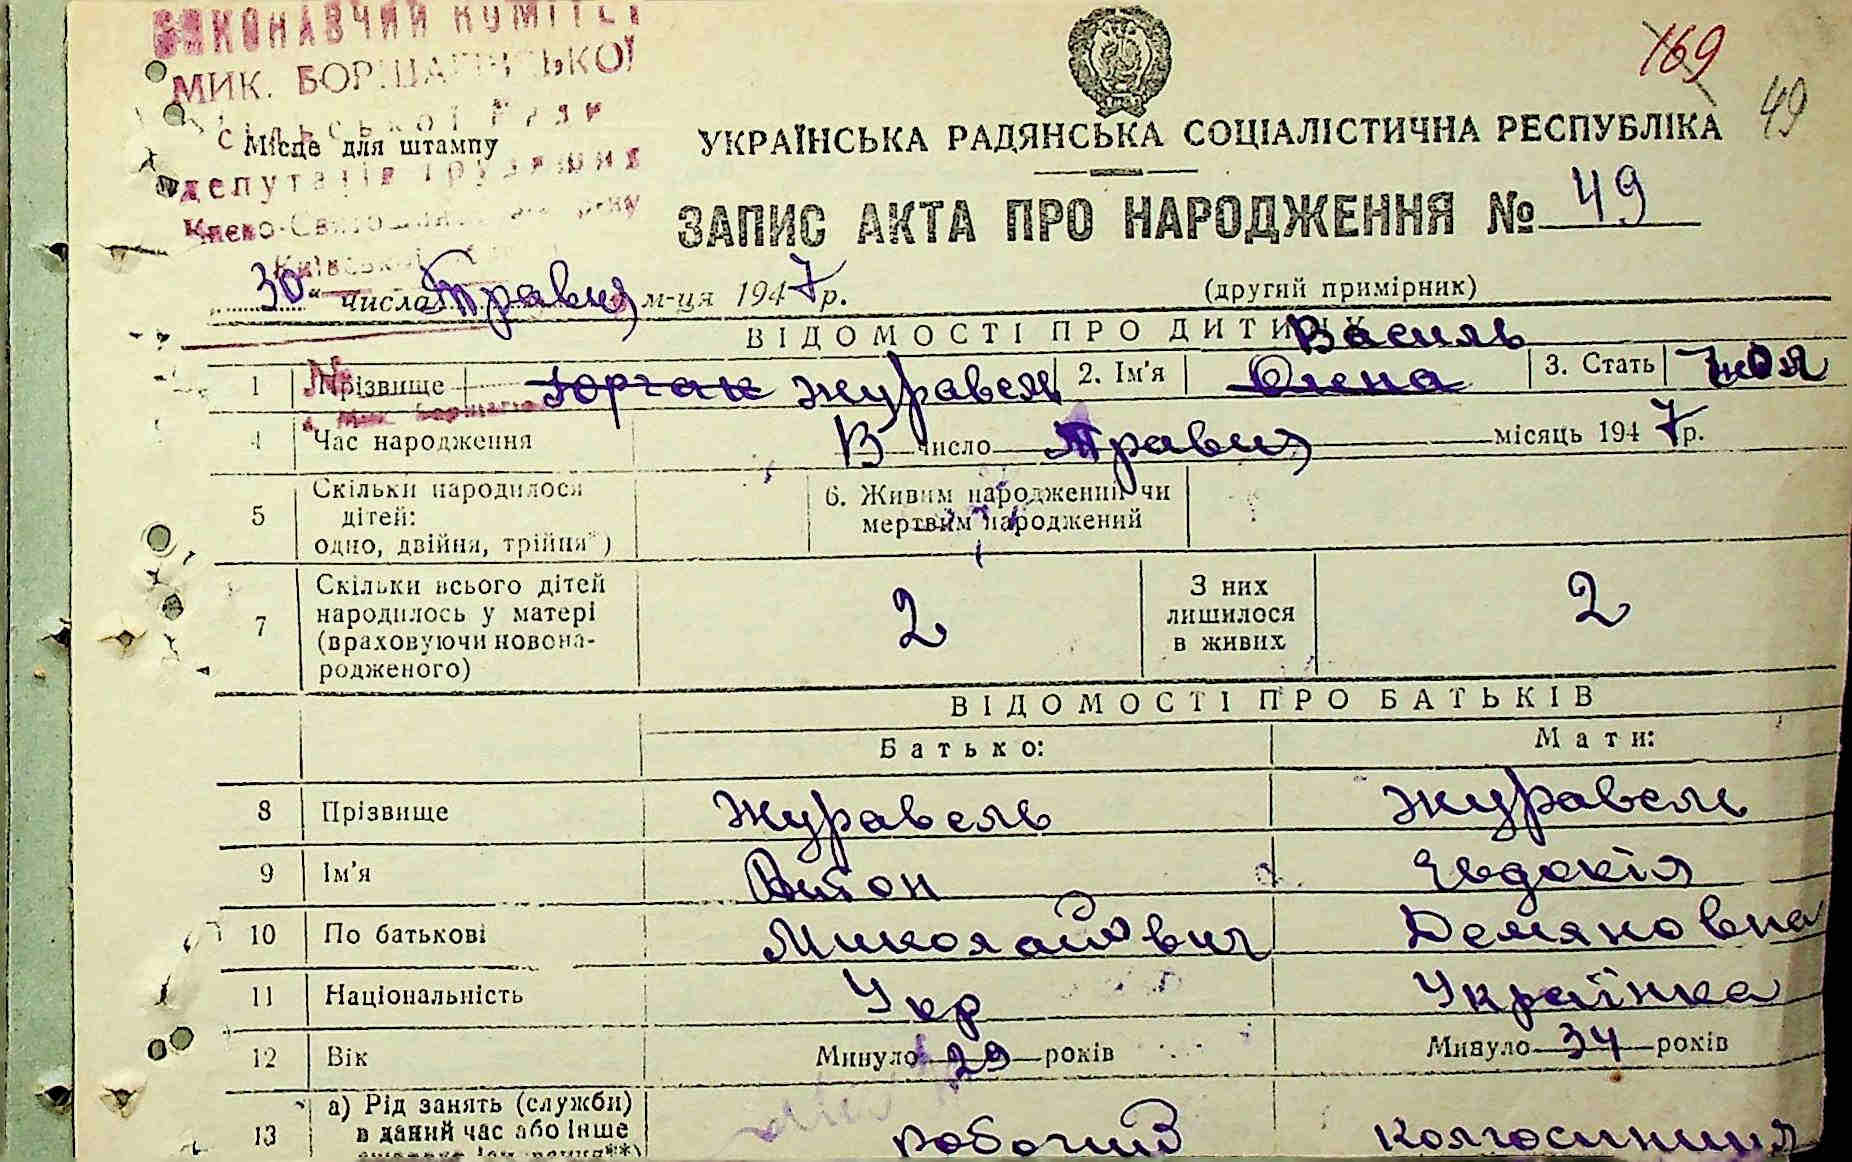 ВИКОНАВЧИЙ КОМІТЕТ
МИК. БОРЩАГІВСЬКОЇ
сільської Ради
Місце для штампу
депутатів трудящих
Києво-Святошинського р-ну
Київської
169
49
УКРАЇНСЬКА РАДЯНСЬКА СОЦІАЛІСТИЧНА РЕСПУБЛІКА
ЗАПИС АКТА ПРО НАРОДЖЕННЯ № 49
30 " числа Травня м-ця 1947 р.
(другий примірник)
ВІДОМОСТІ ПРО ДИТИНУ
Василь
1 Прізвище Журавель 2. Ім'я Олена 3. Стать
4 Час народження число Травня місяць 1947 р.
5 Скільки народилося дітей: одно, двійня, трійня*) 6. Живим народжений чи мертвим народжений
7 Скільки всього дітей народилось у матері (враховуючи новонародженого) 2 З них лишилося в живих 2
ВІДОМОСТІ ПРО БАТЬКІВ
Батько: Мати:
8 Прізвище Журавель Журавель
9 Ім'я Антон Євдокія
10 По батькові Миколайович Демяновна
11 Національність Укр Українка
12 Вік Минуло 29 років Минуло 34 років
13 а) Рід занять (служби) в даний час або інше робочий колгоспниця